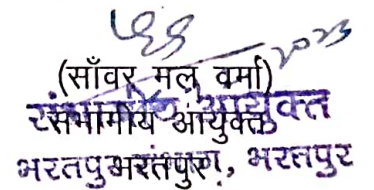 2023
(साँवर मल वर्मा)
संभागीय आयुक्त
संभागीय आयुक्त
भरतपुर
भरतपुर संभाग, भरतपुर